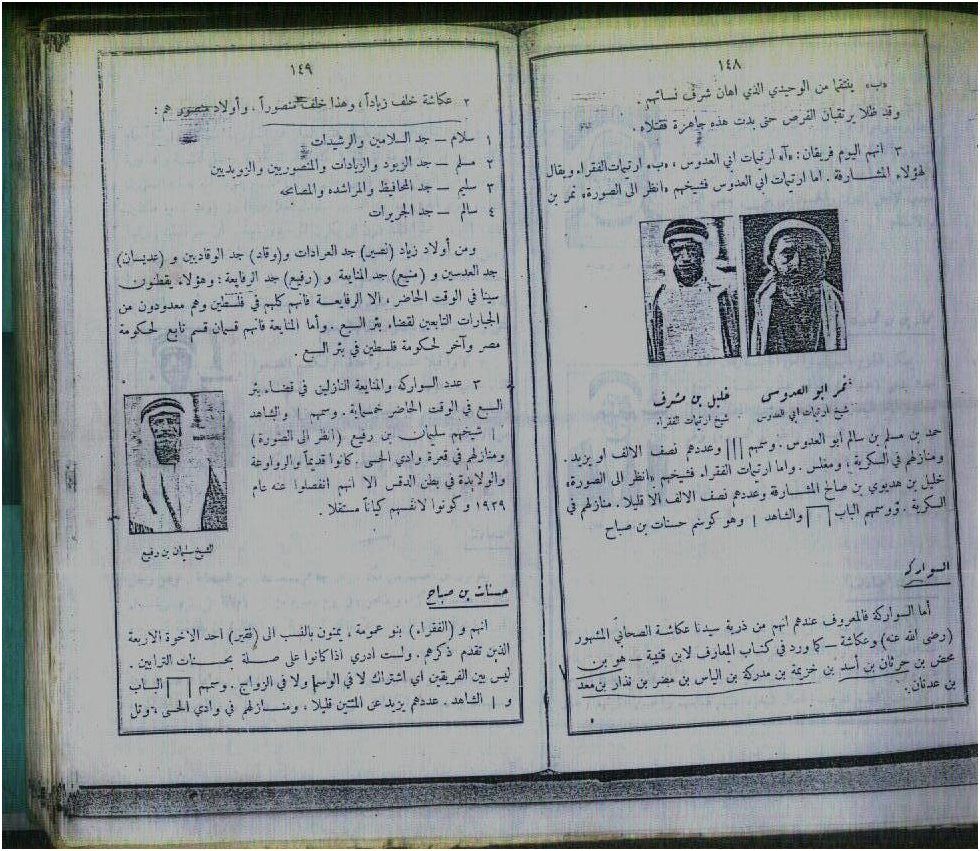 ١٤٨
«ب» ينتقما من الوحيدي الذي اهان شرف نسائهم .
وقد ظلا يرتقبان الفرص حتى بدت هذه جاهزة فقتلاه .
٣ انهم اليوم فريقان : «آ» ارتيمات ابي العدوس ، «ب» ارتيمات الفقراء ويقال
لهؤلاء المشارفة . اما ارتيمات ابي العدوس فشيخهم «انظر الى الصورة» نمر بن
نمر ابو العدوس
شيخ ارتيمات ابي العدوس
خليل بن مشرف
شيخ ارتيمات الفقراء
حمد بن مسلم بن سالم ابو العدوس . وسمهم ||| وعددهم نصف الالف او يزيد .
ومنازلهم في السكرية ، ومغلس . واما ارتيمات الفقراء فشيخهم «انظر الى الصورة»
خليل بن هديوي بن صالح المشارفة وعددهم نصف الالف الا قليلا . منازلهم في
السكرية . ووسمهم الباب والشاهد | وهو كوسم حسنات بن صباح
السواركة
أما السواركة فالمعروف عندهم انهم من ذرية سيدنا عكاشة الصحابي المشهور
(رضي الله عنه) وعكاشة – كما ورد في كتاب المعارف لابن قتيبة – هو بن
محض بن حرثان بن أسد بن خزيمة بن مدركة بن الياس بن مضر بن نذار بن معد
بن عدنان .
١٤٩
٢ عكاشة خلف زياداً ، وهذا خلف منصوراً . وأولاد منصور هم :
١ سلام – جد السلامين والرشيدات
٢ مسلم – جد الزيود والزيادات والمنصوريين والزويديين
٣ سليم – جد المحافيظ والمراشده والمصابحه
٤ سالم – جد الجريرات
ومن أولاد زياد (نصير) جد العرادات و (وقاد) جد الوقاديين و (عديسان)
جد العدسين و (منيع) جد المنايعة و (رفيع) جد الرفايعة : وهؤلاء يقطنون
سينا في الوقت الحاضر ، الا الرفايعة فانهم كلهم في فلسطين وهم معدودون من
الجبارات التابعين لقضاء بئر السبع . وأما المنايعة فانهم قسمان قسم تابع لحكومة
مصر وآخر لحكومة فلسطين في بئر السبع .
٣ عدد السواركة والمنايعة النازلين في قضاء بئر
السبع في الوقت الحاضر خمسماية . وسمهم | والشاهد
| شيخهم سليمان بن رفيع (انظر الى الصورة)
ومنازلهم في قعرة وادي الحسي . كانوا قديماً والرواوعة
والولايدة في بطن الدقس الا انهم انفصلوا عنه عام
١٩٢٩ وكونوا لانفسهم كياناً مستقلا .
الشيخ سليمان بن رفيع
حسنات بن صباح
انهم و (الفقراء) بنو عمومة ، يمتون بالنسب الى (فقير) احد الاخوة الاربعة
الذين تقدم ذكرهم . ولست ادري اذا كانوا على صلة بحسنات الترابين .
ليس بين الفريقين أي اشتراك لا في الوسم ولا في الزواج . وسمهم الباب
و | الشاهد . عددهم يزيد عن المئتين قليلا ، ومنازلهم في وادي الحسى ، وتل